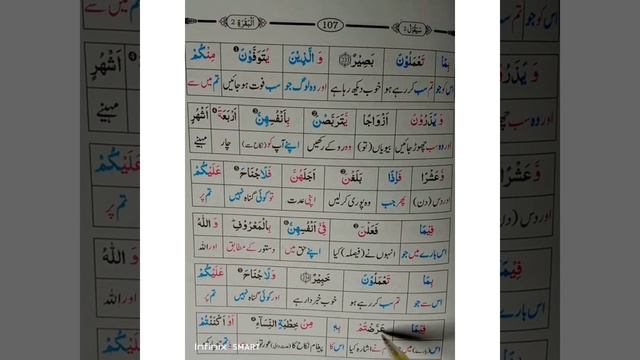 البقرة 2
107
سیقول 2
بِمَا تَعْمَلُوْنَ بَصِيْرٌ وَ الَّذِيْنَ يُتَوَفَّوْنَ مِنْكُمْ
اس کو جو تم سب کر رہے ہو خوب دیکھ رہا ہے اور وہ لوگ جو سب فوت ہو جائیں تم میں سے
وَ يَذَرُوْنَ اَزْوَاجًا يَّتَرَبَّصْنَ بِاَنْفُسِهِنَّ اَرْبَعَةَ اَشْهُرٍ
اور وہ سب چھوڑ جائیں بیویاں (تو) وہ روکے رکھیں اپنے آپ کو (نکاح سے) چار مہینے
وَّ عَشْرًا فَاِذَا بَلَغْنَ اَجَلَهُنَّ فَلَا جُنَاحَ عَلَيْكُمْ
اور دس (دن) پھر جب وہ پوری کر لیں اپنی عدت تو کوئی گناہ نہیں تم پر
فِيْمَا فَعَلْنَ فِيْ اَنْفُسِهِنَّ بِالْمَعْرُوْفِ وَ اللّٰهُ
اس بارے میں جو انہوں نے (فیصلہ) کیا اپنے حق میں دستور کے مطابق اور اللہ
بِمَا تَعْمَلُوْنَ خَبِيْرٌ وَ لَا جُنَاحَ عَلَيْكُمْ
اس سے جو تم سب کر رہے ہو خوب خبردار ہے اور کوئی گناہ نہیں تم پر
فِيْمَا عَرَّضْتُمْ بِهٖ مِنْ خِطْبَةِ النِّسَآءِ اَوْ اَكْنَنْتُمْ
اس (بارے) میں نے اشارہ کیا اس کا پیغام نکاح کا
Infinix SMART